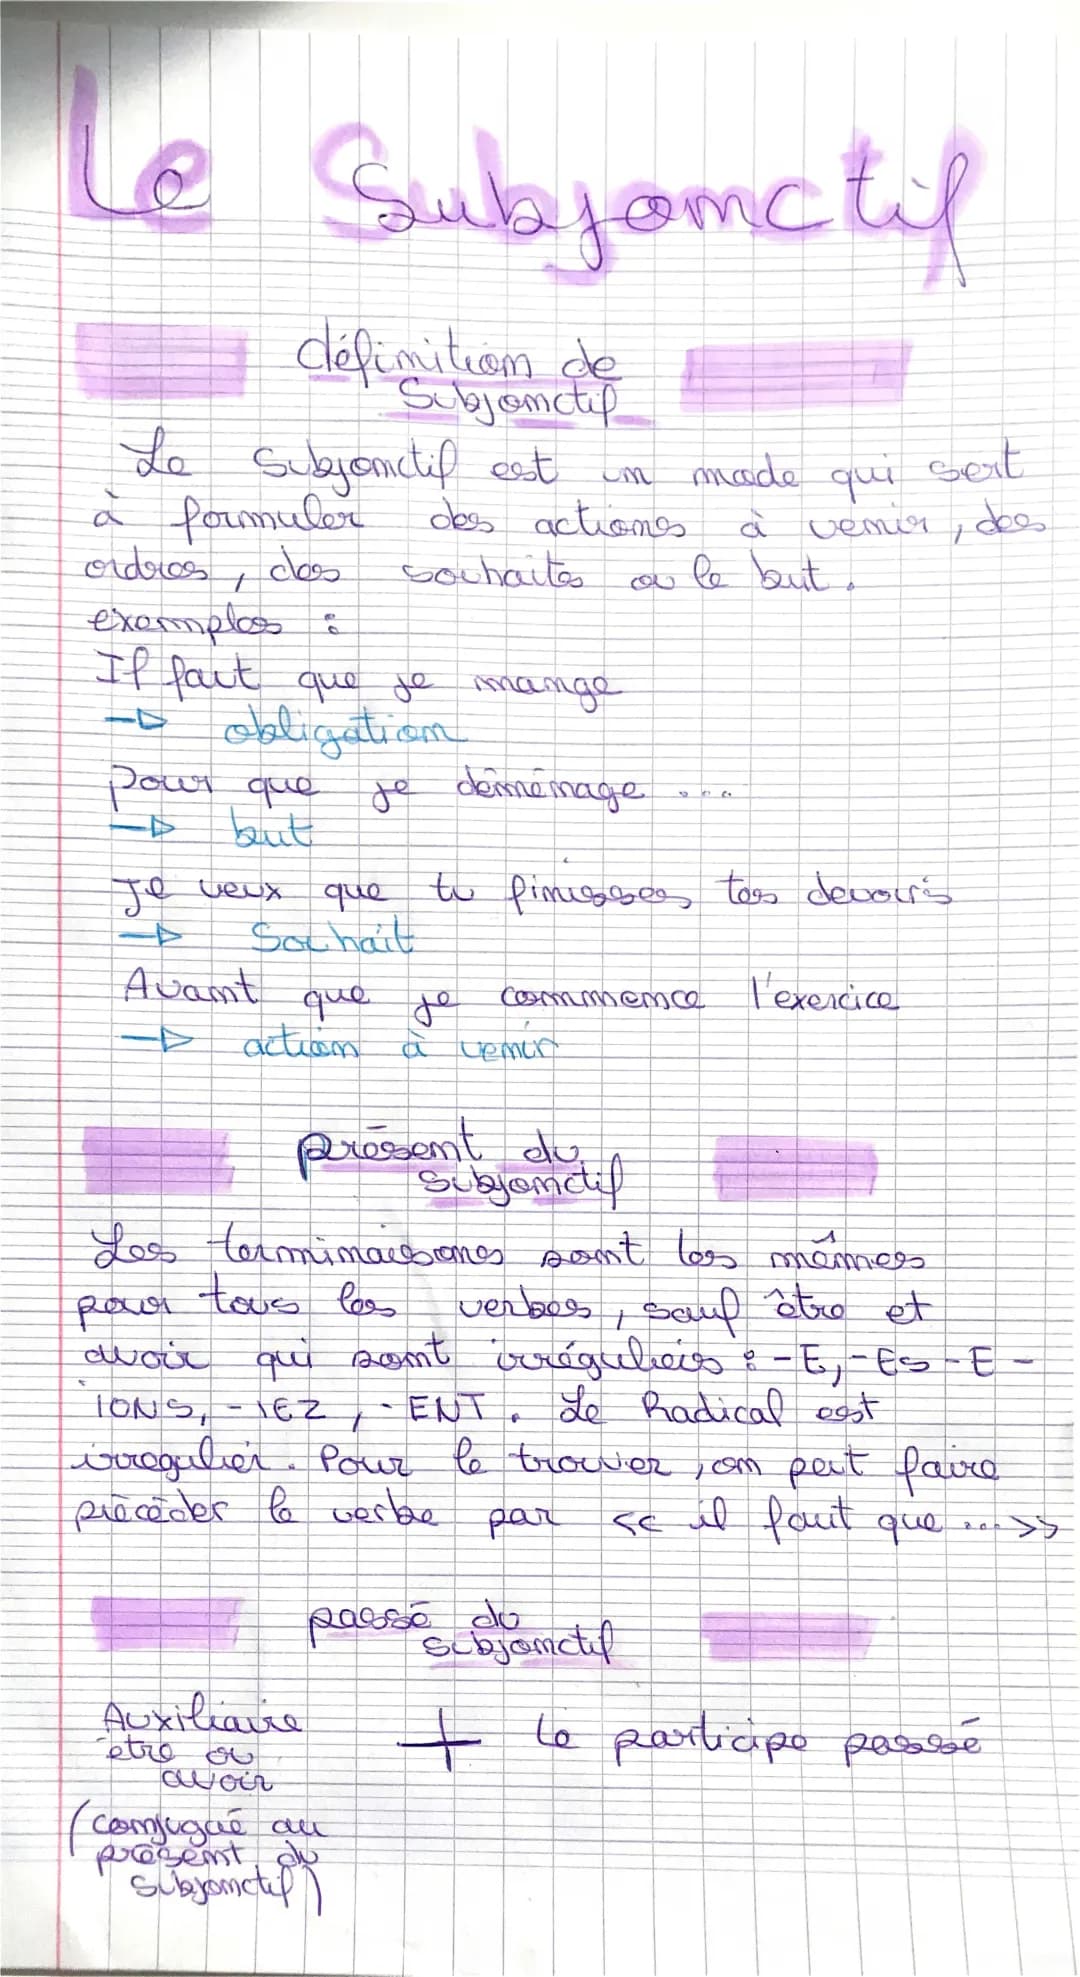 Le Subjonctif
définition de
Subjonctif
Le Subjonctif est un mode qui sert
à formuler des actions à venir, des
ordres, des souhaits ou le but.
exemples :
Il faut que je mange
→ obligation
Pour que je déménage ...
→ but
Je veux que tu finisses tes devoirs
→ Souhait
Avant que je commence l'exercice
→ action à venir
présent du
Subjonctif
Les terminaisons sont les mêmes
pour tous les verbes, sauf être et
avoir qui sont irréguliers : -E, -ES -E -
IONS, -IEZ, -ENT. Le Radical est
irregulier. Pour le trouver, on peut faire
précéder le verbe par << il faut que ... >>
passé du
subjonctif
Auxiliaire
être ou
avoir
+ le participe passé
(conjugué au
présent du
subjonctif)